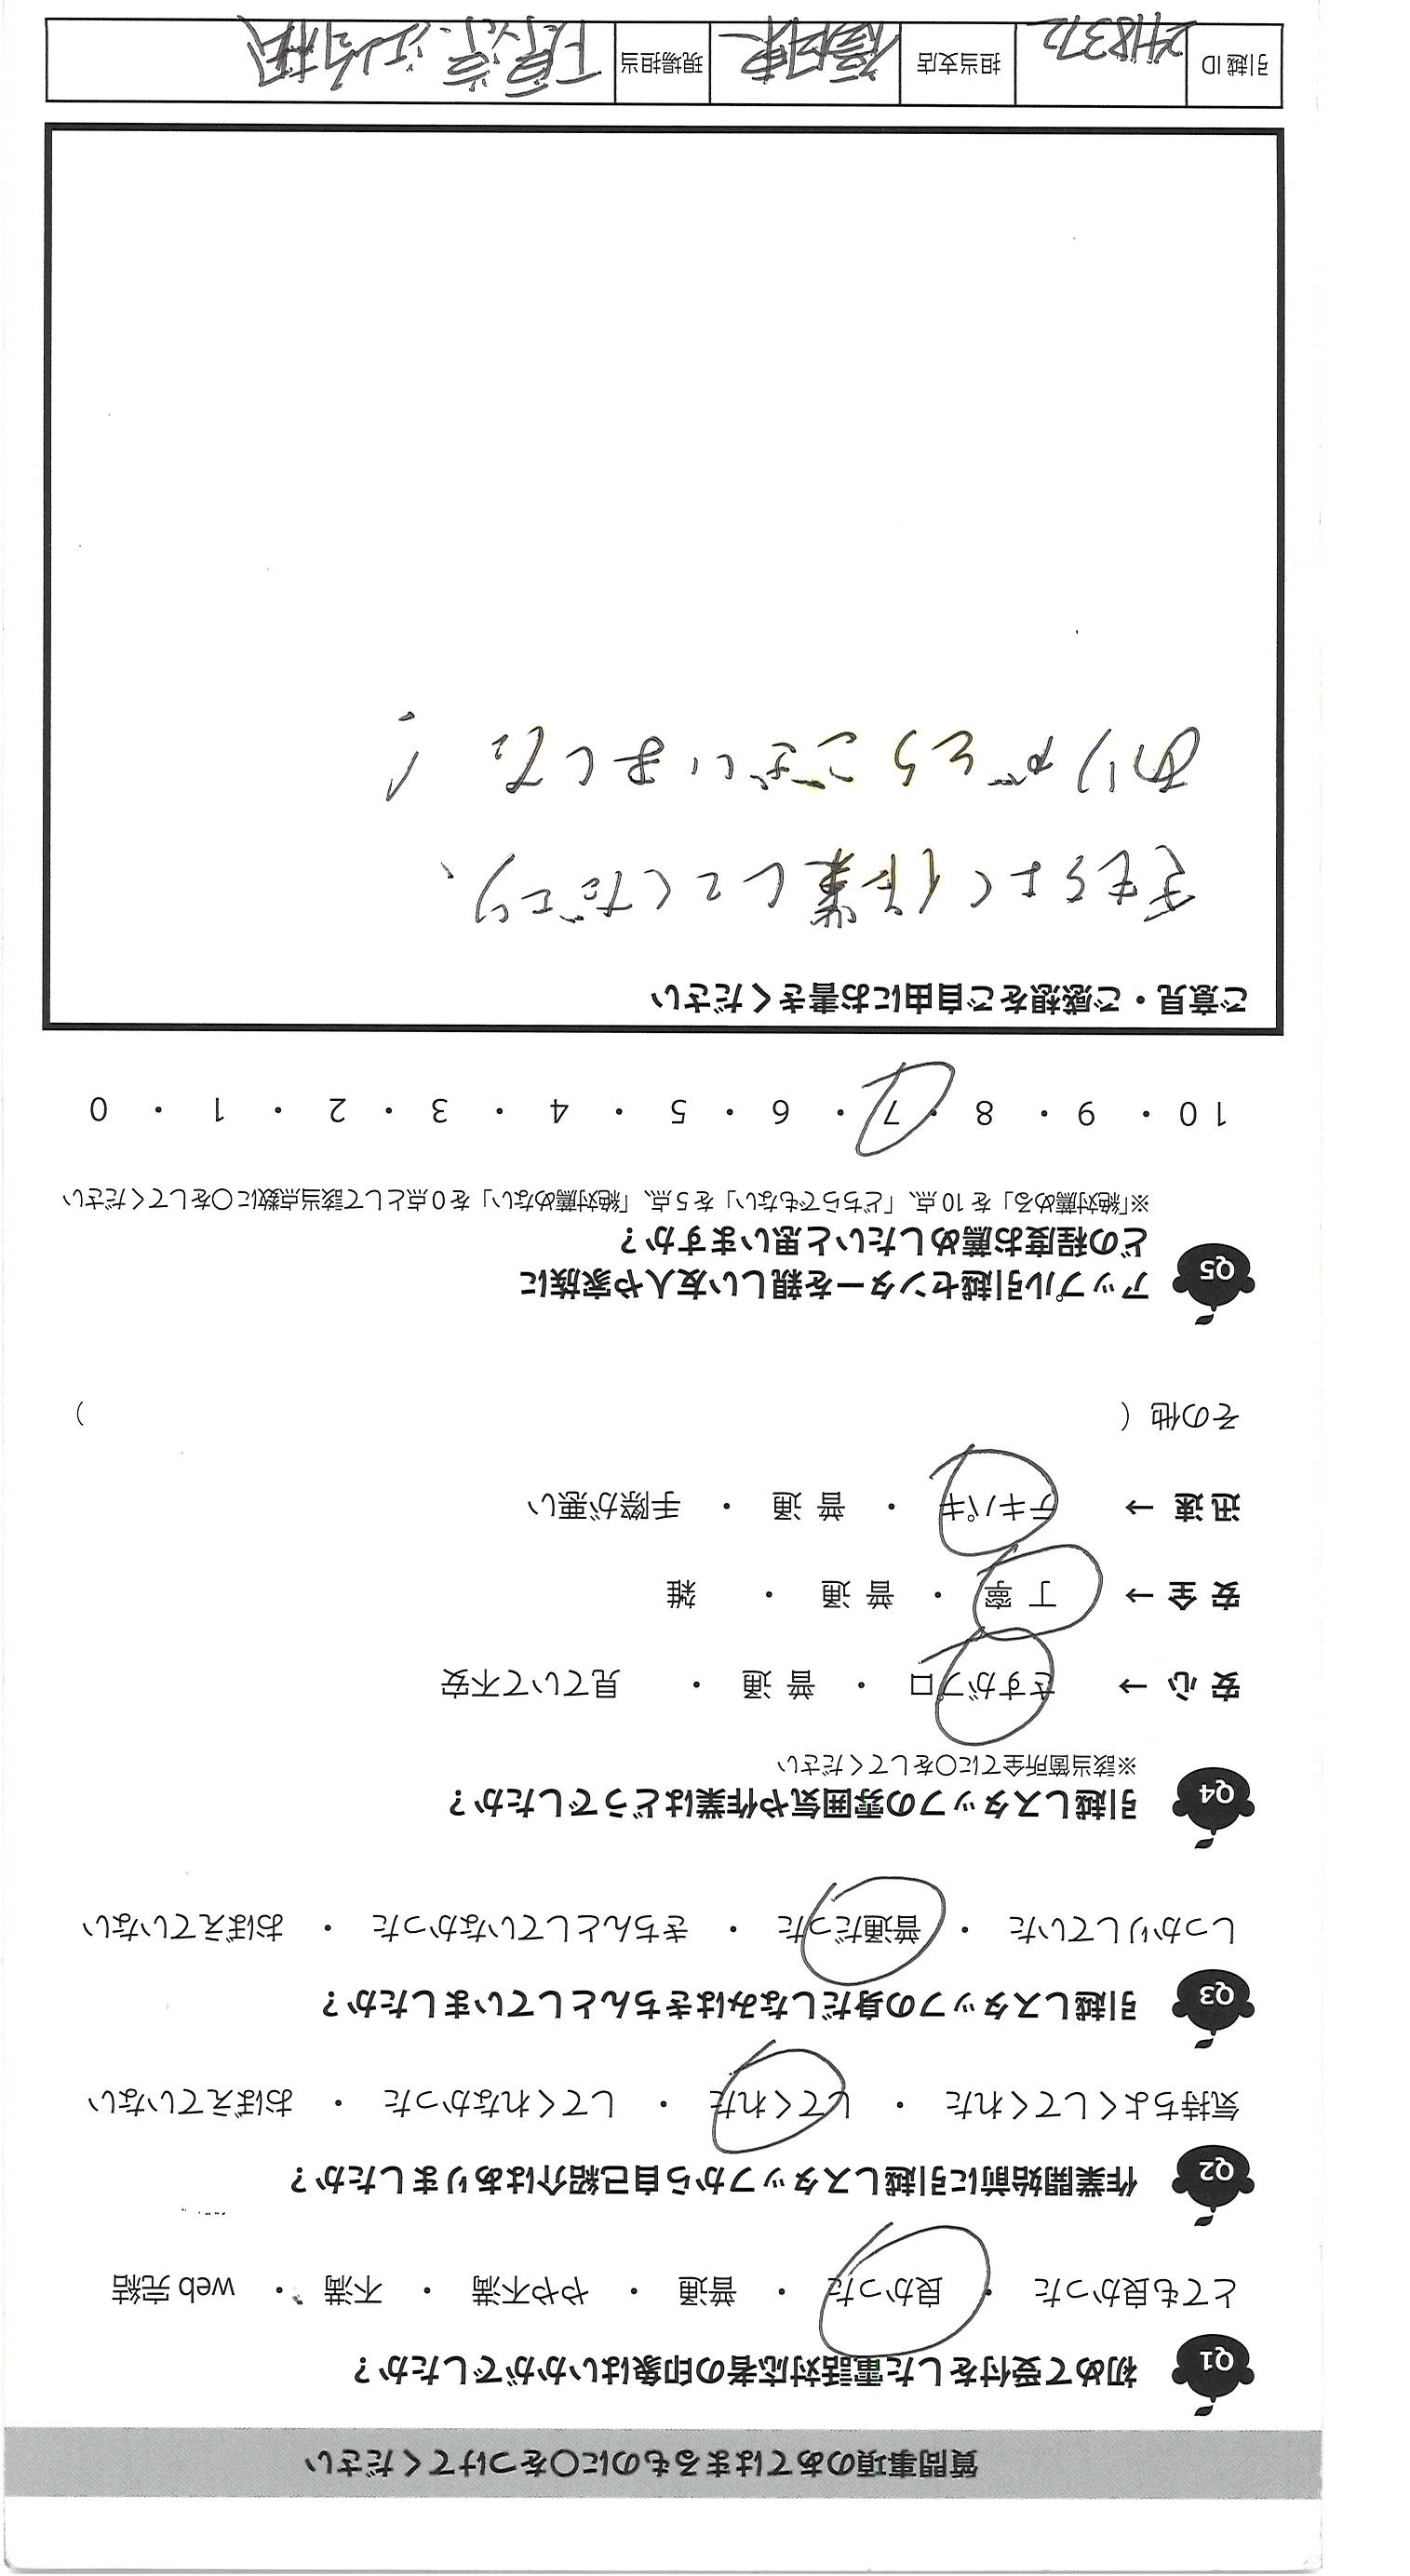 質問事項のあてはまるものに○をつけてください
Q1 初めて受付をした電話対応者の印象はいかがでしたか？
とても良かった ・ 良かった ・ 普通 ・ やや不満 ・ 不満 ・ web 完結
Q2 作業開始前に引越しスタッフから自己紹介はありましたか？
気持ちよくしてくれた ・ してくれた ・ してくれなかった ・ おぼえていない
Q3 引越しスタッフの身だしなみはきちんとしていましたか？
しっかりしていた ・ 普通だった ・ きちんとしていなかった ・ おぼえていない
Q4 引越しスタッフの雰囲気や作業はどうでしたか？
※該当箇所全てに○をしてください
安 心 → さすがプロ ・ 普 通 ・ 見ていて不安
安 全 → 丁 寧 ・ 普 通 ・ 雑
迅 速 → テキパキ ・ 普 通 ・ 手際が悪い
その他（ ）
Q5 アップル引越センターを親しい友人や家族に
どの程度お薦めしたいと思いますか？
※「絶対薦める」を 10 点、「どちらでもない」を 5 点、「絶対薦めない」を 0 点として該当点数に○をしてください
10 ・ 9 ・ 8 ・ 7 ・ 6 ・ 5 ・ 4 ・ 3 ・ 2 ・ 1 ・ 0
ご意見・ご感想をご自由にお書きください
きもちよく作業してくださり、
ありがとうございました！
引越 ID 担当支店 現場担当